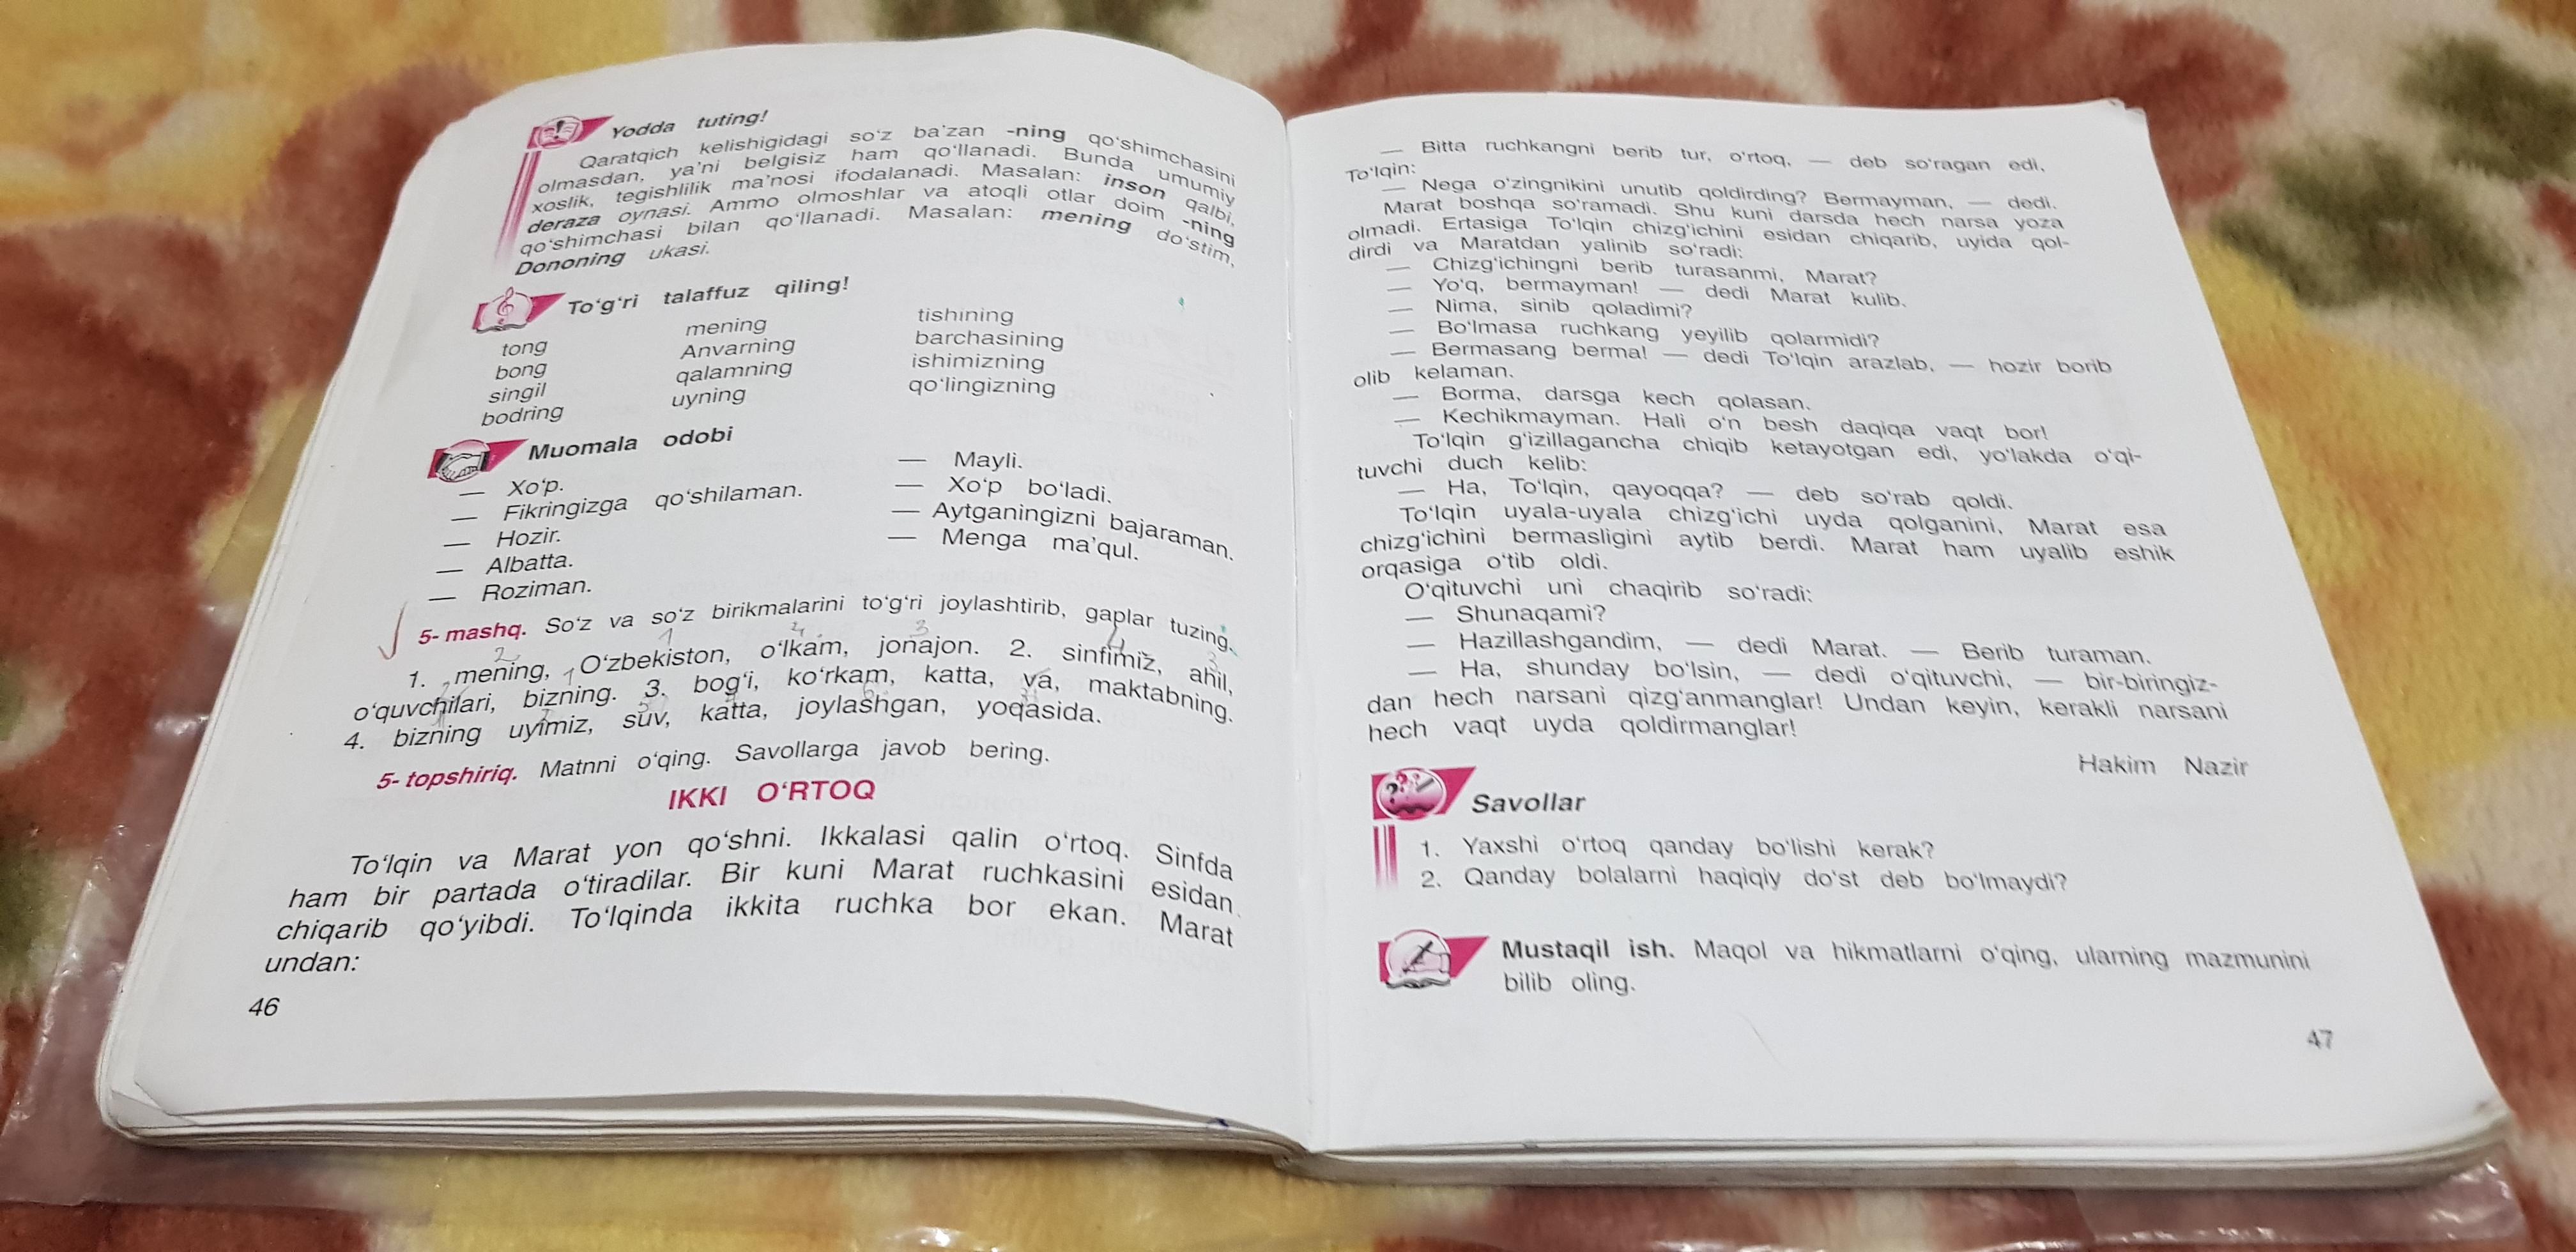 Yodda tuting!
Qaratqich kelishigidagi so‘z ba’zan -ning qo‘shimchasini
olmasdan, ya’ni belgisiz ham qo‘llanadi. Bunda umumiy
xoslik, tegishlilik ma’nosi ifodalanadi. Masalan: inson qalbi,
deraza oynasi. Ammo olmoshlar va atoqli otlar doim -ning
qo‘shimchasi bilan qo‘llanadi. Masalan: mening do‘stim,
Dononing ukasi.
To‘g‘ri talaffuz qiling!
tong
bong
singil
bodring
mening
Anvarning
qalamning
uyning
tishining
barchasining
ishimizning
qo‘lingizning
Muomala odobi
— Xo‘p.
— Fikringizga qo‘shilaman.
— Hozir.
— Albatta.
— Roziman.
— Mayli.
— Xo‘p bo‘ladi.
— Aytganingizni bajaraman.
— Menga ma’qul.
5- mashq. So‘z va so‘z birikmalarini to‘g‘ri joylashtirib, gaplar tuzing.
1. mening, O‘zbekiston, o‘lkam, jonajon. 2. sinfimiz, ahil,
o‘quvchilari, bizning. 3. bog‘i, ko‘rkam, katta, va, maktabning.
4. bizning uyimiz, suv, katta, joylashgan, yoqasida.
5- topshiriq. Matnni o‘qing. Savollarga javob bering.
IKKI O‘RTOQ
To‘lqin va Marat yon qo‘shni. Ikkalasi qalin o‘rtoq. Sinfda
ham bir partada o‘tiradilar. Bir kuni Marat ruchkasini esidan
chiqarib qo‘yibdi. To‘lqinda ikkita ruchka bor ekan. Marat
undan:
46
— Bitta ruchkangni berib tur, o‘rtoq, — deb so‘ragan edi,
To‘lqin:
— Nega o‘zingnikini unutib qoldirding? Bermayman, — dedi.
Marat boshqa so‘ramadi. Shu kuni darsda hech narsa yoza
olmadi. Ertasiga To‘lqin chizg‘ichini esidan chiqarib, uyida qol-
dirdi va Maratdan yalinib so‘radi:
— Chizg‘ichingni berib turasanmi, Marat?
— Yo‘q, bermayman! — dedi Marat kulib.
— Nima, sinib qoladimi?
— Bo‘lmasa ruchkang yeyilib qolarmidi?
— Bermasang berma! — dedi To‘lqin arazlab, — hozir borib
olib kelaman.
— Borma, darsga kech qolasan.
— Kechikmayman. Hali o‘n besh daqiqa vaqt bor!
To‘lqin g‘izillagancha chiqib ketayotgan edi, yo‘lakda o‘qi-
tuvchi duch kelib:
— Ha, To‘lqin, qayoqqa? — deb so‘rab qoldi.
To‘lqin uyala-uyala chizg‘ichi uyda qolganini, Marat esa
chizg‘ichini bermasligini aytib berdi. Marat ham uyalib eshik
orqasiga o‘tib oldi.
O‘qituvchi uni chaqirib so‘radi:
— Shunaqami?
— Hazillashgandim, — dedi Marat. — Berib turaman.
— Ha, shunday bo‘lsin, — dedi o‘qituvchi, — bir-biringiz-
dan hech narsani qizg‘anmanglar! Undan keyin, kerakli narsani
hech vaqt uyda qoldirmanglar!
Hakim Nazir
Savollar
1. Yaxshi o‘rtoq qanday bo‘lishi kerak?
2. Qanday bolalarni haqiqiy do‘st deb bo‘lmaydi?
Mustaqil ish. Maqol va hikmatlarni o‘qing, ularning mazmunini
bilib oling.
47